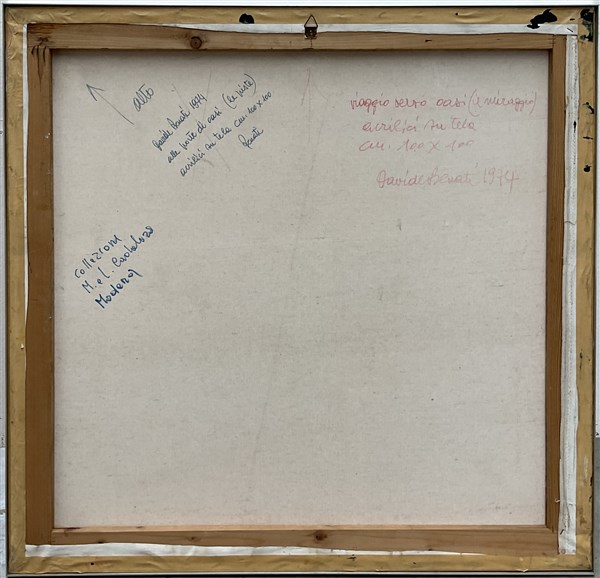 alto
Davide Benati 1974
alle porte di oasi (le piste)
acrilici su tela cm. 100 x 100
Benati
viaggio verso oasi (e miraggio)
acrilici su tela
cm. 100 x 100
Davide Benati 1974
collezione
M. e L.
Modena